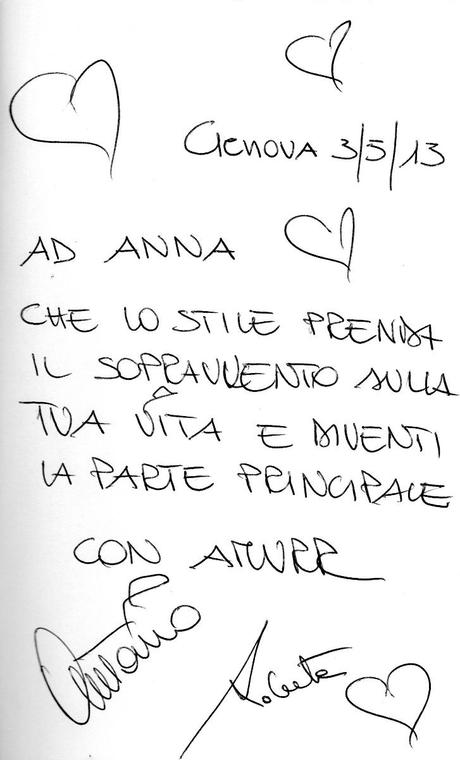 Genova 3/5/13
AD ANNA
CHE LO STILE PRENDA
IL SOPRAVVENTO SULLA
TUA VITA E DIVENTI
LA PARTE PRINCIPALE
CON